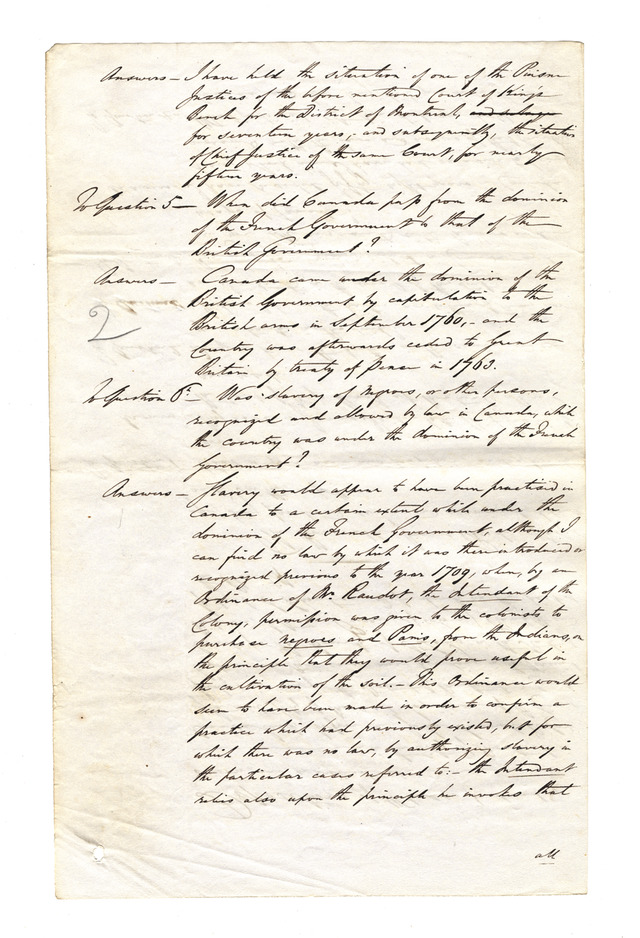 Answers — I have held the situation of one of the Puisne
Justices of the before mentioned Court of King's
Bench for the District of Montreal, and subseqn
for seventeen years,; and subsequently, the situation
of Chief Justice of the same Court, for nearly
fifteen years.
To Question 5 — When did Canada pass from the dominion
of the French Government to that of the
British Government?
Answers — Canada came under the dominion of the
British Government by capitulation to the
British arms in September 1760, - and the
2
Country was afterwards ceded to Great
Britain by treaty of Peace in 1763.
To Question 6: — Was slavery of negroes, or other persons,
recognized and allowed by law in Canada, while
the country was under the dominion of the French
Government?
Answers — Slavery would appear to have been practised in
Canada to a certain extent while under the
dominion of the French Government, although I
can find no law by which it was there introduced or
recognized previous to the year 1709, when, by an
Ordinance of Mr. Raudot, the Intendant of the
Colony, permission was given to the colonists to
purchase negroes and Panis, from the Indians, on
the principle that they would prove useful in
the cultivation of the soil. — This Ordinance would
seem to have been made in order to confirm a
practice which had previously existed, but for
which there was no law, by authorizing slavery in
the particular cases referred to: — the Intendant
relies also upon the principle he invokes that
all